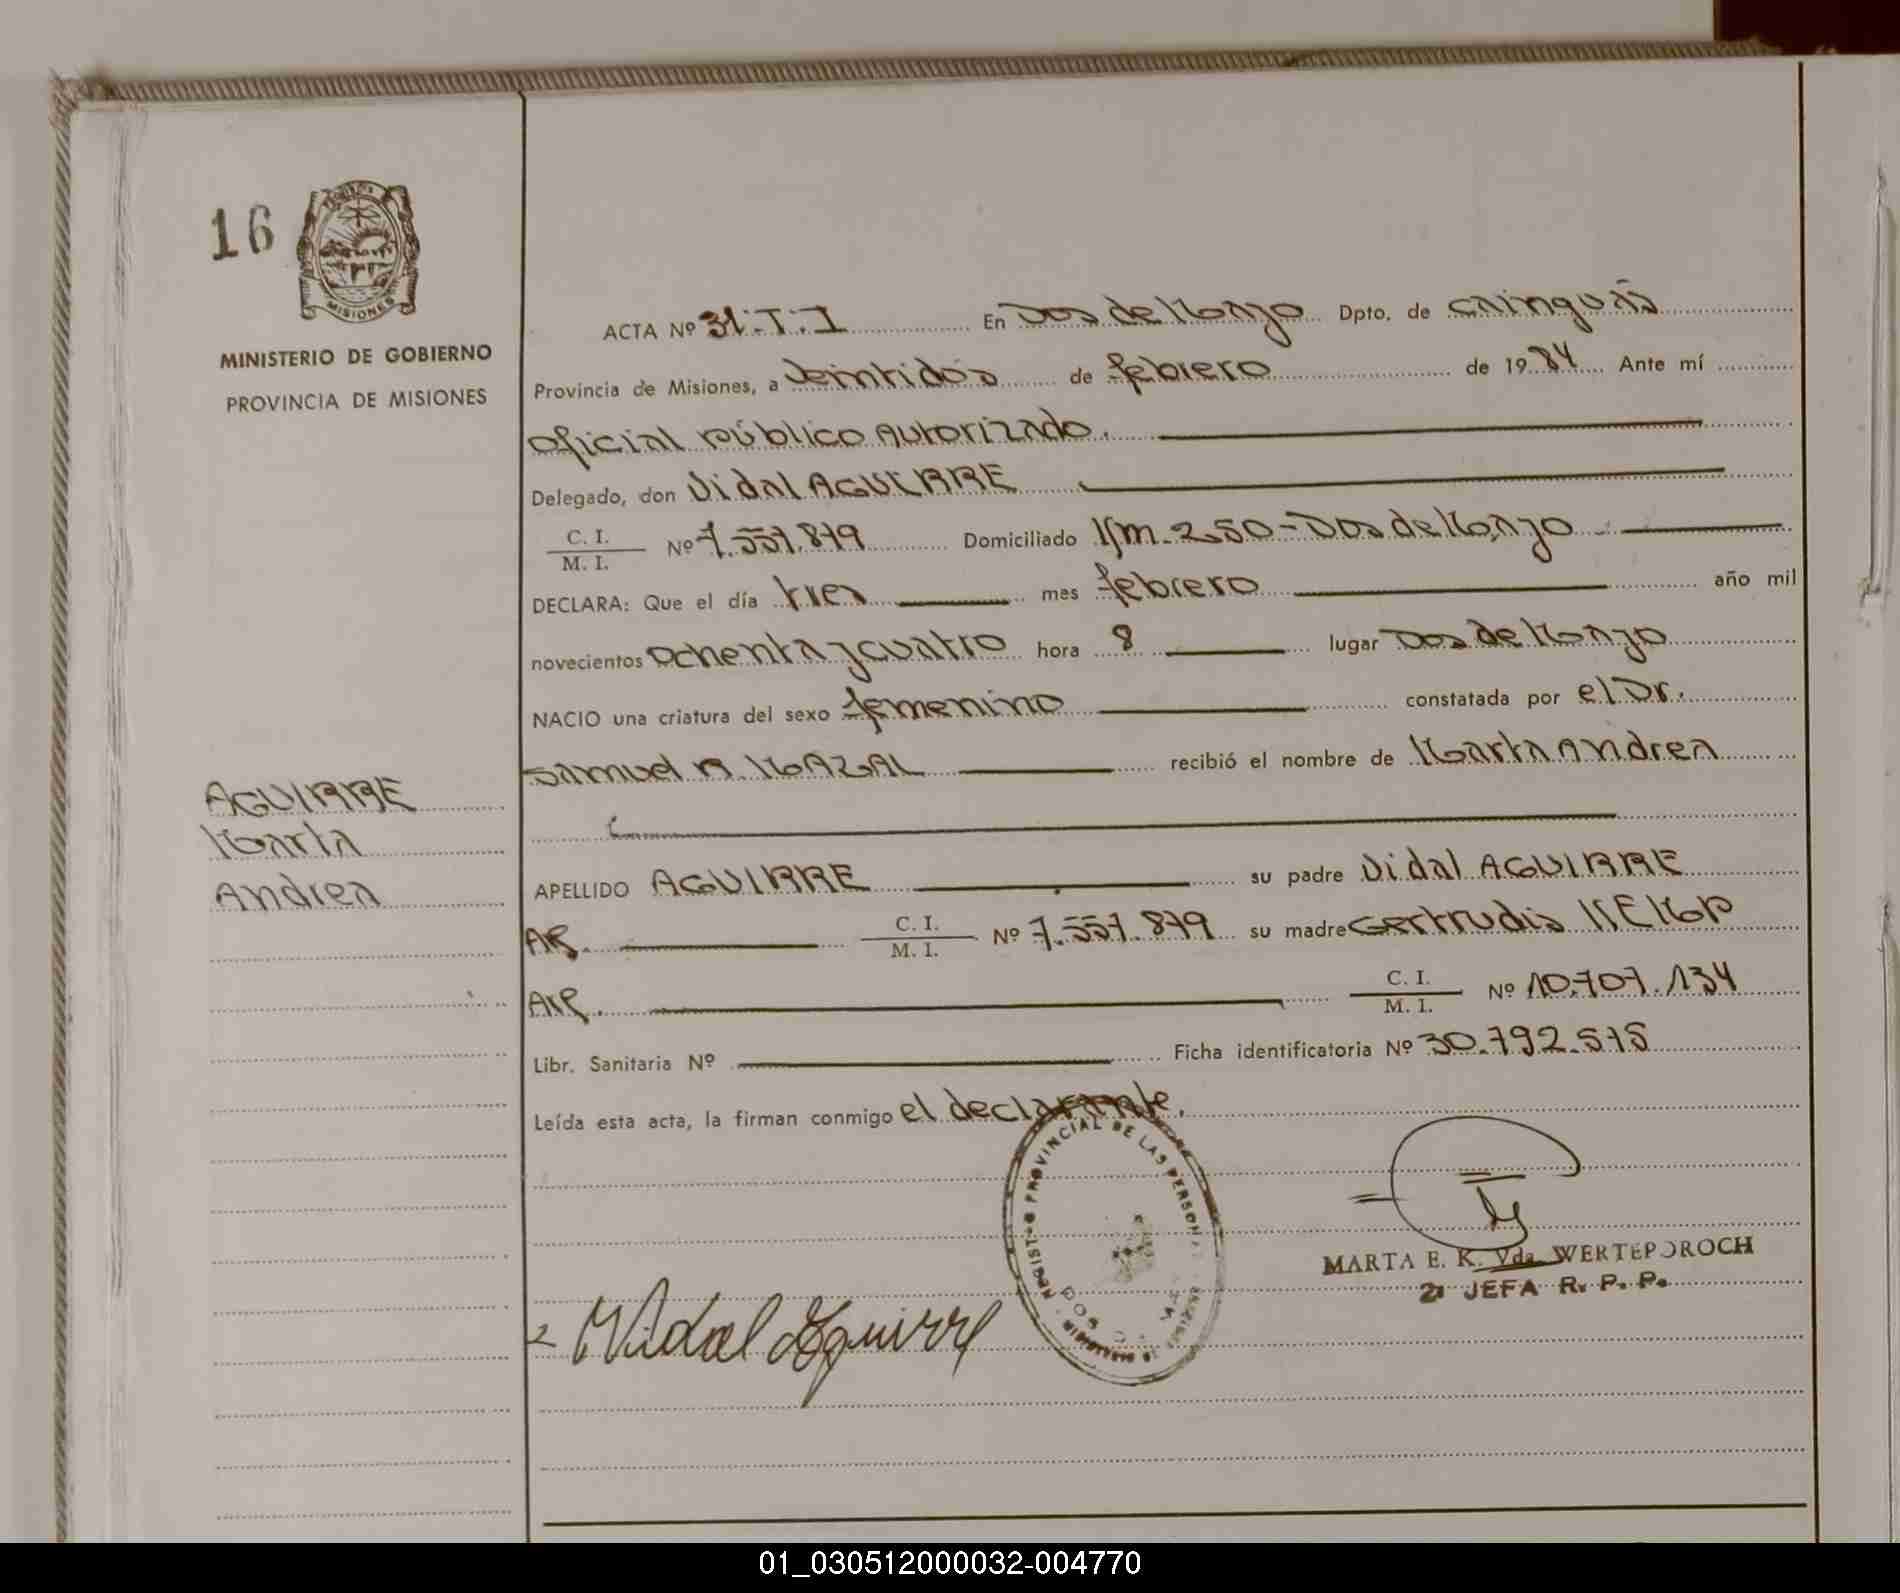 16
MISIONES
MINISTERIO DE GOBIERNO
PROVINCIA DE MISIONES
ACTA Nº 31.T.I En Dos de Mayo Dpto. de Cainguás
Provincia de Misiones, a veintidós de febrero de 1984 Ante mí
oficial público autorizado.
Delegado, don Vidal AGUIRRE
C. I.
M. I. Nº 7.557.879 Domiciliado Km. 250 - Dos de Mayo
DECLARA: Que el día tres mes febrero año mil
novecientos ochenta y cuatro hora 8 lugar Dos de Mayo
NACIO una criatura del sexo femenino constatada por el Dr.
Samuel A. MAZAL recibió el nombre de Marta Andrea
AGUIRRE
Marta
Andrea
APELLIDO AGUIRRE su padre Vidal AGUIRRE
AR. C. I.
M. I. Nº 7.557.879 su madre Gertrudis KEMP
AR. C. I.
M. I. Nº 10.707.134
Libr. Sanitaria Nº Ficha identificatoria Nº 30.792.575
Leída esta acta, la firman conmigo el declarante.
PROVINCIAL DE LAS PERSONAS
MARTA E. K. Vda. WERTEPOROCH
JEFA R. P. P.
Vidal Aguirre
01_030512000032-004770